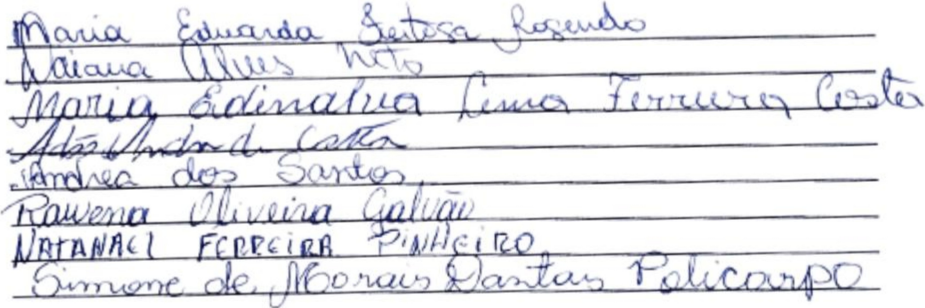 Maria Eduarda Feitosa Rosendo
Naiana Alves Neto
Maria Edinalva Lima Ferreira Costa
Costa
Andrea dos Santos
Rawena Oliveira Galvão
NATANAEL FERREIRA PINHEIRO
Simone de Morais Dantas Policarpo